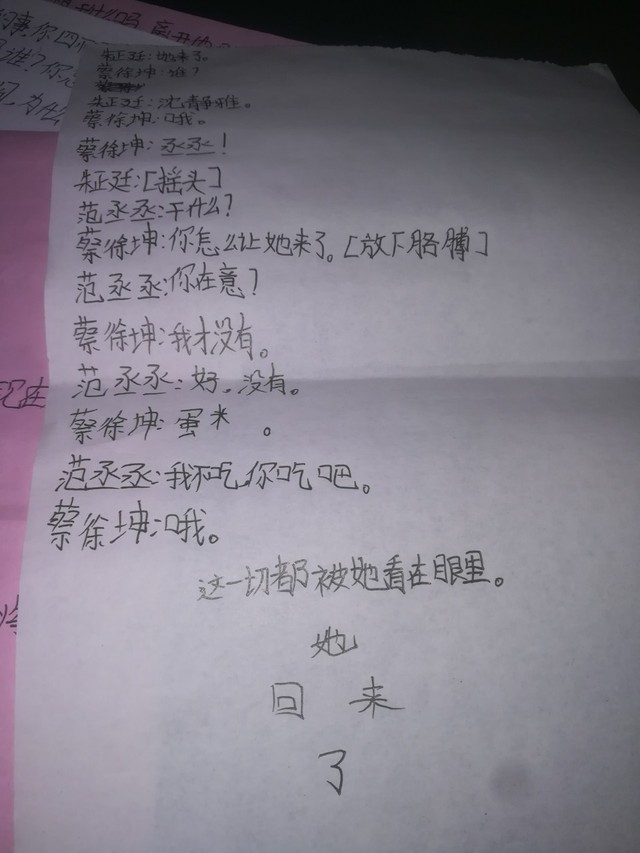 朱正廷:她来了。
蔡徐坤:谁?
朱正廷:沈静雅。
蔡徐坤:哦。
蔡徐坤:丞丞!
朱正廷:[摇头]
范丞丞:干什么?
蔡徐坤:你怎么让她来了。[放下胳膊]
范丞丞:你在意?
蔡徐坤:我才没有。
范丞丞:好,没有。
蔡徐坤:蛋米。
范丞丞:我不吃,你吃吧。
蔡徐坤:哦。
这一切都被她看在眼里。
她
回来
了
现在